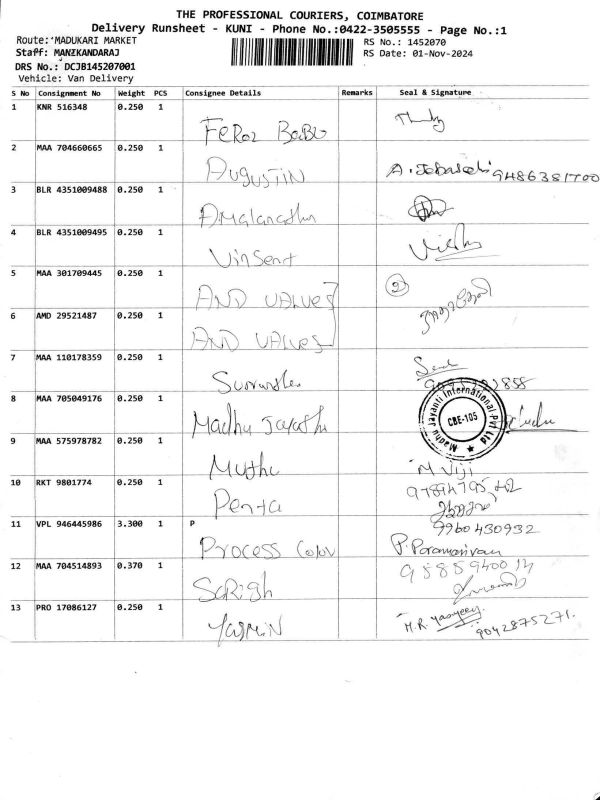 THE PROFESSIONAL COURIERS, COIMBATORE
Delivery Runsheet - KUNI - Phone No.:0422-3505555 - Page No.:1
Route:'MADUKARI MARKET
RS No.: 1452070
Staff: MANIKANDARAJ
RS Date: 01-Nov-2024
DRS No.: DCJB145207001
Vehicle: Van Delivery
S No Consignment No Weight PCS Consignee Details Remarks Seal & Signature
1 KNR 516348 0.250 1
FeRoz BaBu
2 MAA 704660665 0.250 1
AUgUSTIN 9486381700
3 BLR 4351009488 0.250 1
4 BLR 4351009495 0.250 1
VinSent
5 MAA 301709445 0.250 1
AND VALVES 2
6 AMD 29521487 0.250 1
AND VALVES
7 MAA 110178359 0.250 1
8 MAA 705049176 0.250 1
Madhu Jayanthi
Madhu Jayanti International Pvt Ltd
CBE-105
9 MAA 575978782 0.250 1
Muthu M Viji
10 RKT 9801774 0.250 1
Penta
9960430932
11 VPL 946445986 3.300 1 P
Process Color P. Paramasivan
12 MAA 704514893 0.370 1
SaRigh
13 PRO 17086127 0.250 1
YasmiN M.R. 9042875271.